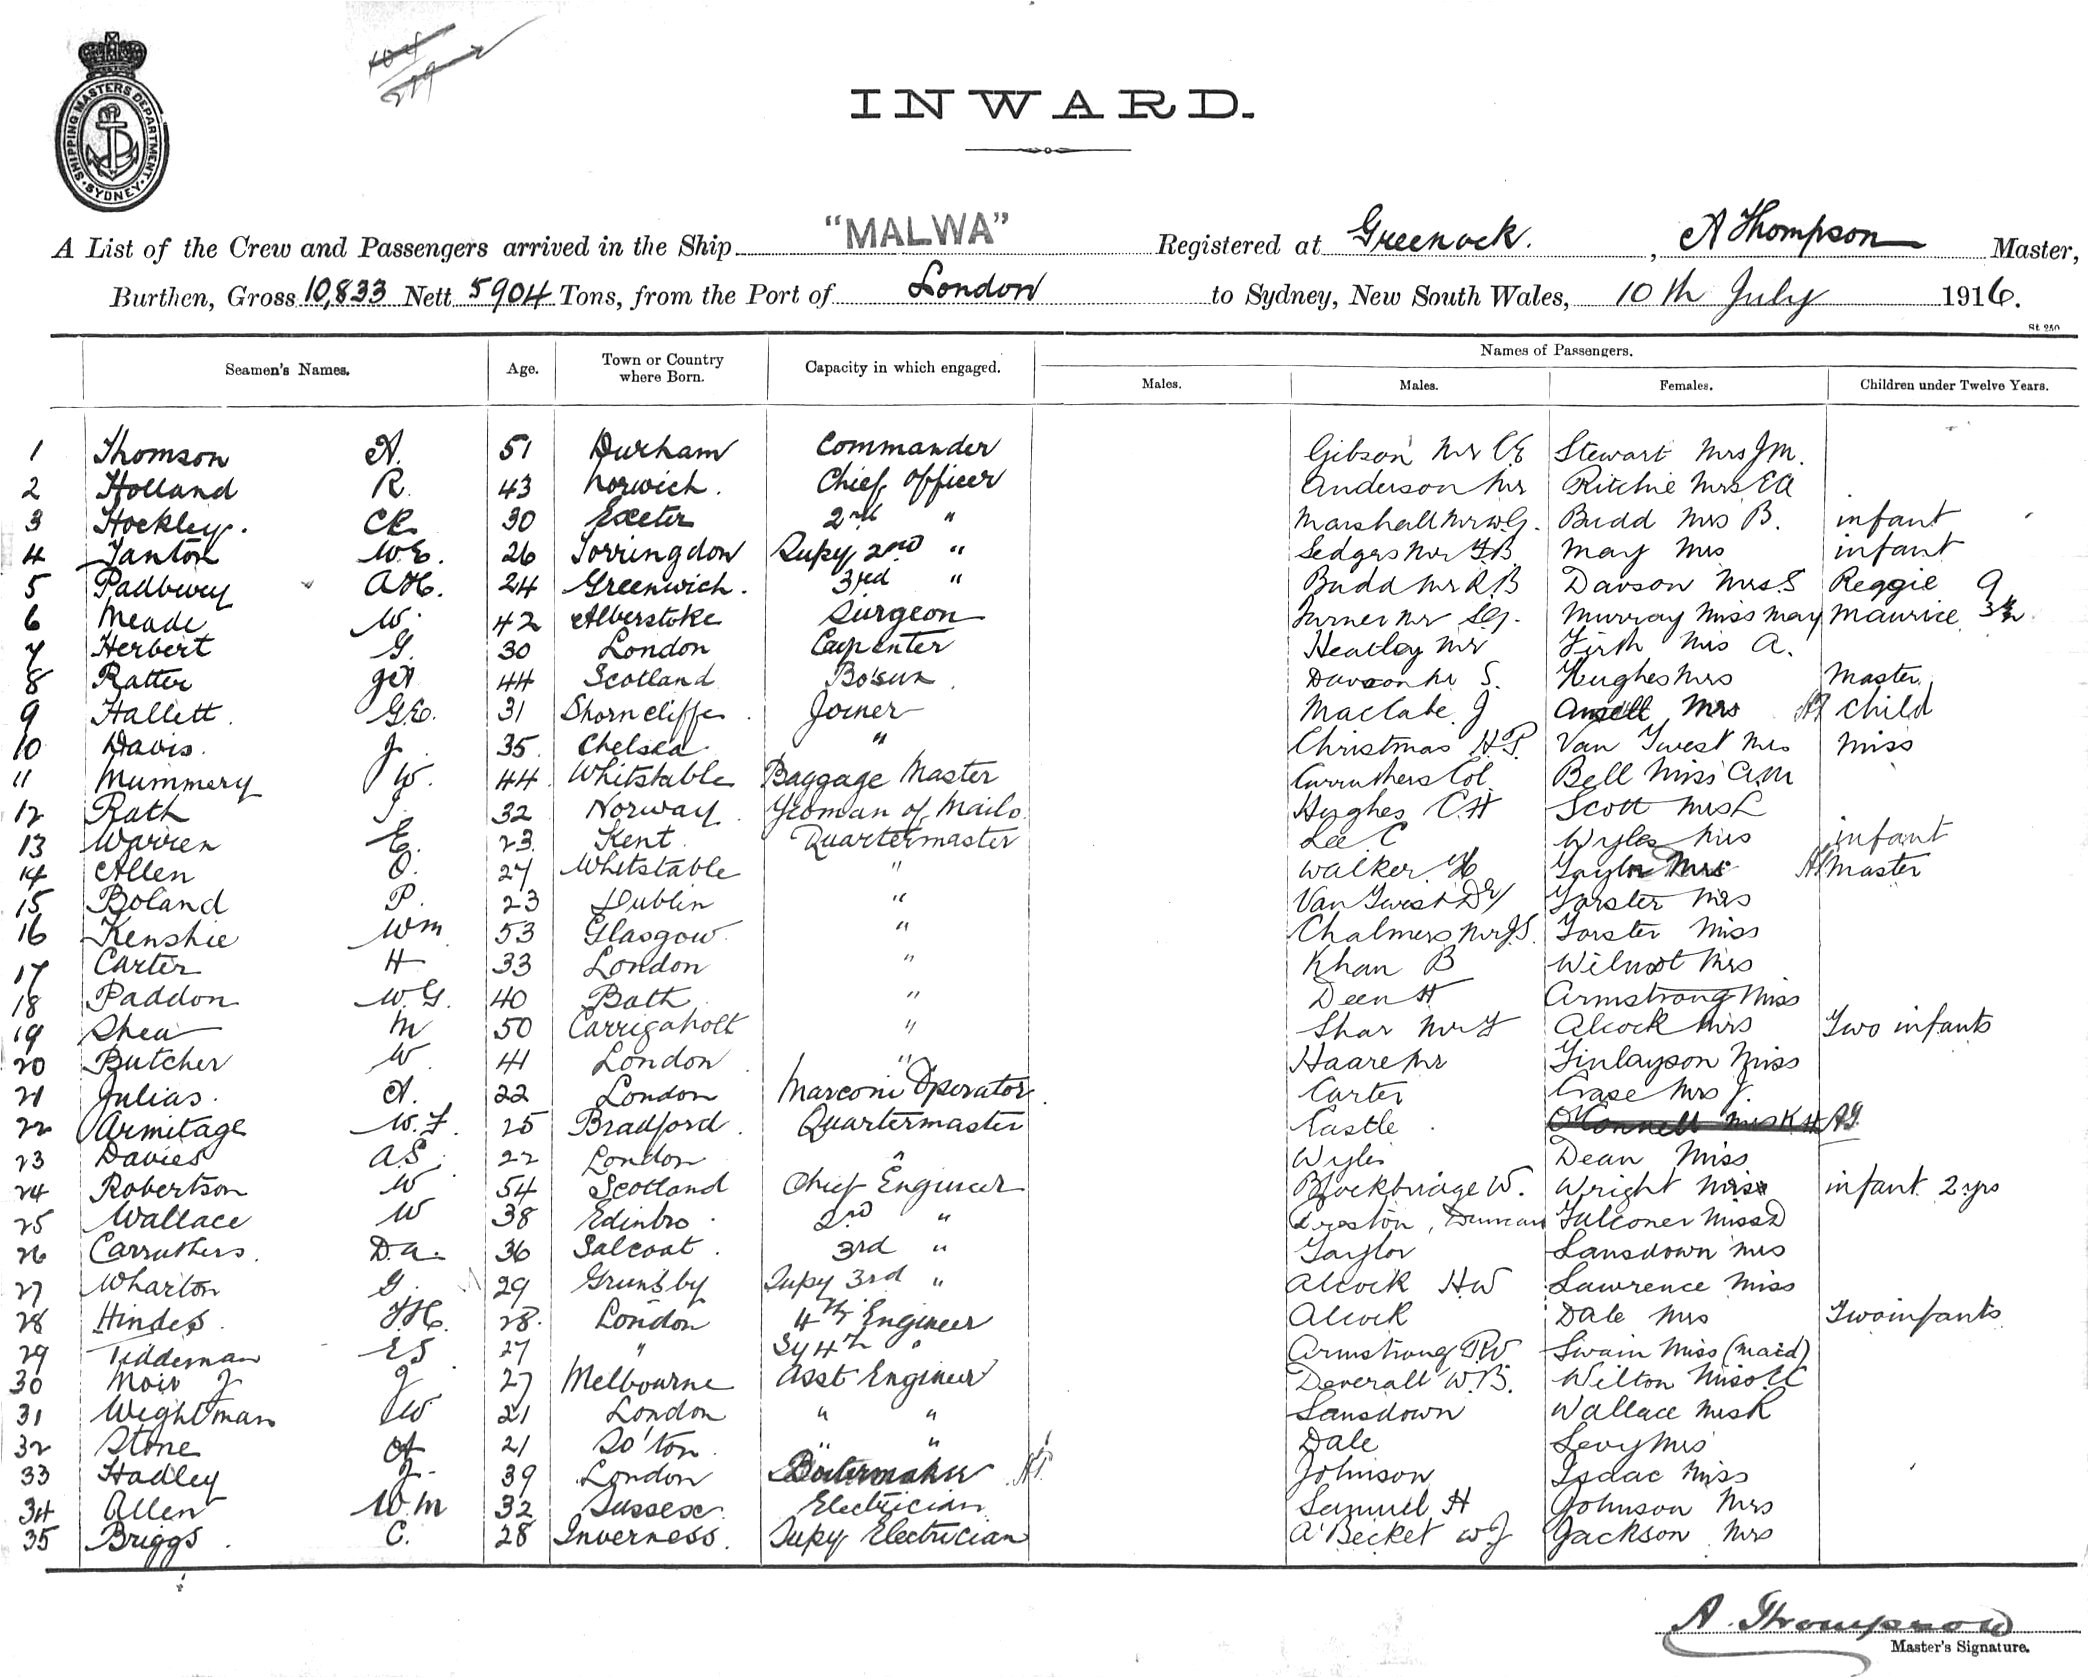 SHIPPING MASTERS DEPARTMENT
SYDNEY
INWARD.
A List of the Crew and Passengers arrived in the Ship "MALWA" Registered at Greenock. , A Thompson Master,
Burthen, Gross 10,833 Nett 5904 Tons, from the Port of London to Sydney, New South Wales, 10th July 1916.
St 250
Names of Passengers.
Seamen's Names. Age. Town or Country where Born. Capacity in which engaged. Males. Males. Females. Children under Twelve Years.
1 Thomson A. 51 Durham Commander Gibson Mr CE Stewart Mrs J.M.
2 Holland R. 43 Norwich. Chief Officer Anderson Mr Ritchie Mrs EA
3 Hockley. CR 30 Exeter 2nd " Marshall Mr W.G. Budd Mrs B. infant
4 Tanton W.E. 26 Torringdon Supy 2nd " Sedgers Mr May Mrs infant
5 Padbury A.H. 24 Greenwich. 3rd " Budd Mr R B Davson Mrs S Reggie 9
6 Meade W. 42 Alverstoke Surgeon Turner Mr Murray Miss May Maurice
7 Herbert G. 30 London Carpenter Heatley Mr Firth A.
8 Ratter 44 Scotland Bo'sun Davson Mr S. Hughes Mrs Master
9 Hallett. G.E. 31 Shorncliffe Joiner Maccabe J Ansell Mrs child
10 Davis. J. 35. Chelsea " Christmas H.P. Van Twest Mrs Miss
11 Mummery W. 44 Whitstable Baggage Master Carruthers Col Bell Miss A.M
12 Rath 32 Norway Yeoman of Mails Hughes C H Scott Mrs L
13 Warren E. 23. Kent Quartermaster Lee C Wyles Mrs infant
14 Allen O. 27 Whitstable " Walker Taylor Mrs Master
15 Boland P. 23 Dublin " Van Twest Dr Forster Mrs
16 Kenshie Wm 53 Glasgow " Chalmers Mr J.S. Forster Miss
17 Carter H 33 London " Khan B Wilmot Mrs
18 Paddon W.G. 40 Bath " Deen H Armstrong Miss
19 Shea M 50 Carrigaholt " Shar Mr Alcock Mrs Two infants
20 Butcher W. 41 London " Haare Mr Finlayson Miss
21 Julias. A. 22 London Marconi Operator Carter Crase Mrs J.
22 Armitage W.F. 25 Bradford. Quartermaster Castle O'Connell Mrs K
23 Davies A.S. 22 London " Wyles Dean Miss
24 Robertson W 54 Scotland Chief Engineer Brockbridge W. Wright Mrs infant 2 yrs
25 Wallace W 38 Edinbro 2nd " Preston, Duncan Falconer Miss D
26 Carruthers. D.A. 36 Salcoat. 3rd " Taylor Lansdown Mrs
27 Wharton G. 29 Grimsby Supy 3rd " Alcock H W Lawrence Miss
28 Hindes. 28. London 4th Engineer Alcock Dale Mrs Two infants
29 Tiddeman ES 27 " Sy 4th " Armstrong R.W Swain Miss (maid)
30 Moir J J 27 Melbourne Asst Engineer Deverall W.B. Wilton Miss
31 Wightman W 21 London " " Lansdown Wallace Mrs R
32 Stone A 21 So'ton. " " Dale Levy Mrs
33 Hadley J. 39 London Boilermaker Johnson Isaac Miss
34 Allen W.M 32 Sussex. Electrician Samuel H Johnson Mrs
35 Briggs. C. 28 Inverness. Supy Electrician A'Becket W J Jackson Mrs
A. Thompson
Master's Signature.